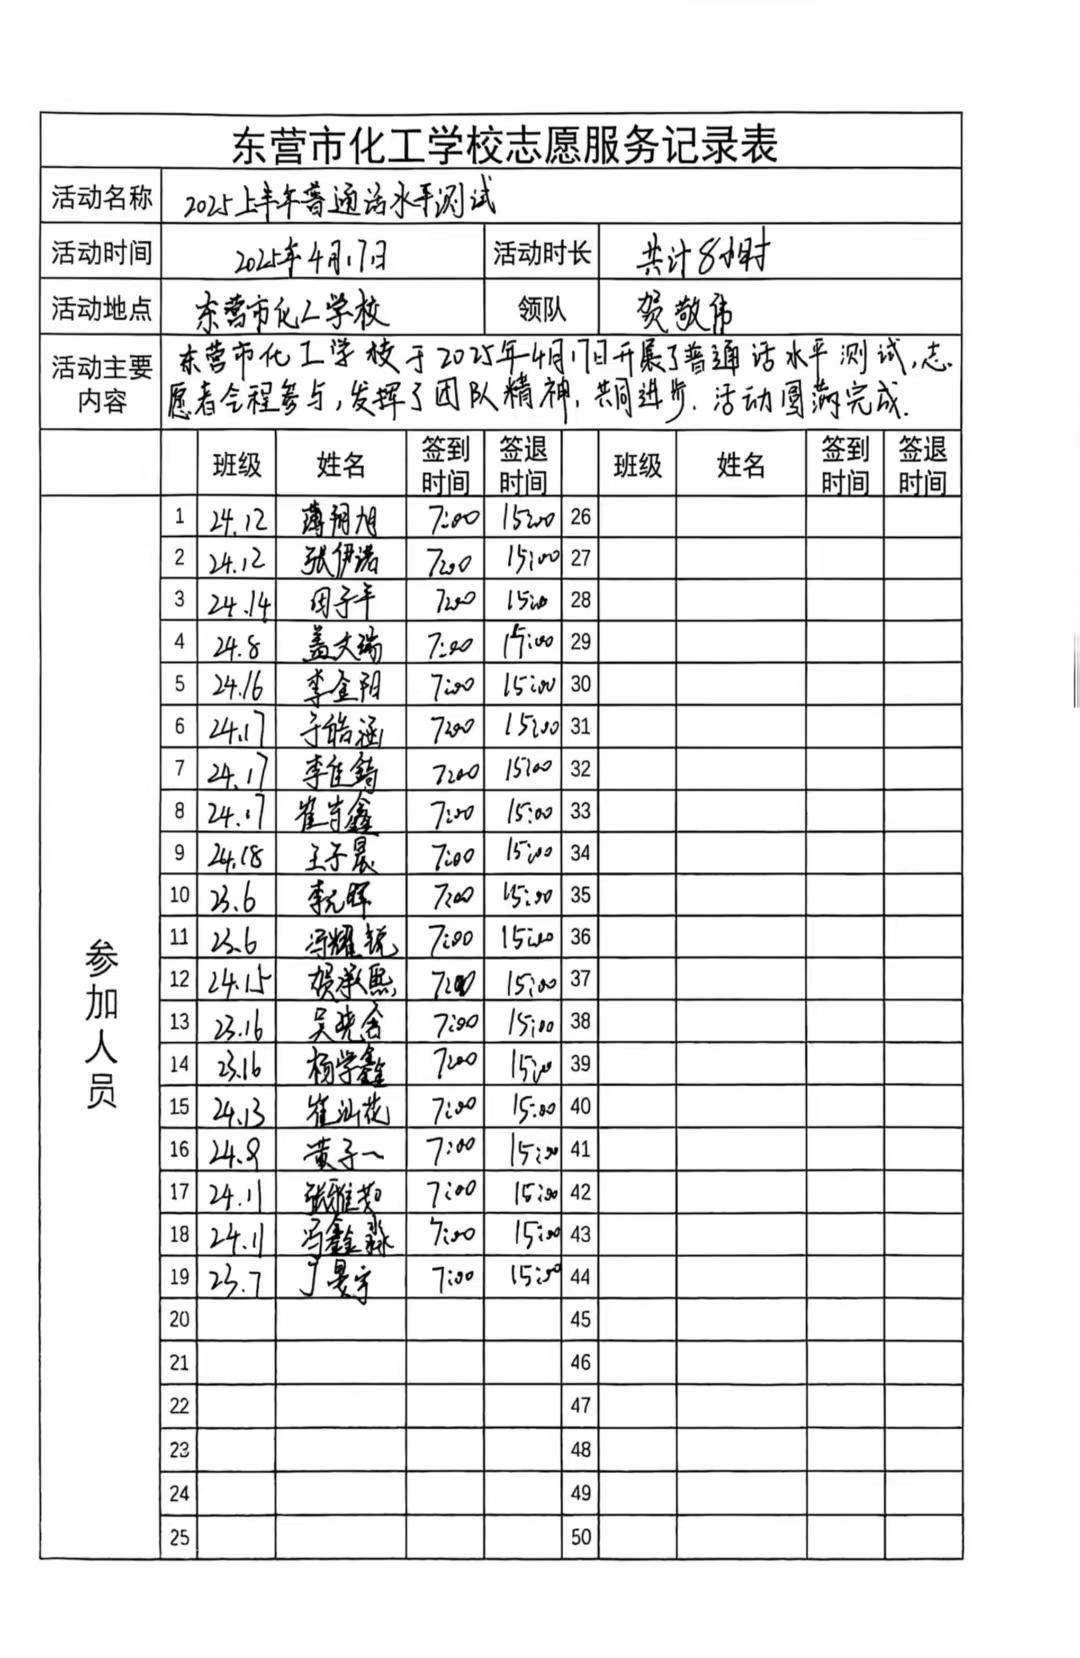 东营市化工学校志愿服务记录表
活动名称 2025上半年普通话水平测试
活动时间 2025年4月17日 活动时长 共计8小时
活动地点 东营市化工学校 领队 贺敬伟
活动主要内容 东营市化工学校于2025年4月17日开展了普通话水平测试,志
愿者全程参与,发挥了团队精神,共同进步.活动圆满完成.
班级 姓名 签到时间 签退时间 班级 姓名 签到时间 签退时间
参加人员
1 24.12 薄翔旭 7:00 15:00 26
2 24.12 张伊诺 7:00 15:00 27
3 24.14 田子平 7:00 15:00 28
4 24.8 盖文瑞 7:00 15:00 29
5 24.16 李金阳 7:00 15:00 30
6 24.17 于皓涵 7:00 15:00 31
7 24.17 李佳錡 7:00 15:00 32
8 24.17 崔肖鑫 7:00 15:00 33
9 24.18 王子晨 7:00 15:00 34
10 23.6 李元晖 7:00 15:00 35
11 23.6 冯耀锐 7:00 15:00 36
12 24.15 贺承熙 7:00 15:00 37
13 23.16 吴晓含 7:00 15:00 38
14 23.16 杨学鑫 7:00 15:00 39
15 24.13 崔汕花 7:00 15:00 40
16 24.9 黄子一 7:00 15:00 41
17 24.11 张雅茹 7:00 15:00 42
18 24.11 冯鑫淼 7:00 15:00 43
19 23.7 丁昊宇 7:00 15:00 44
20 45
21 46
22 47
23 48
24 49
25 50